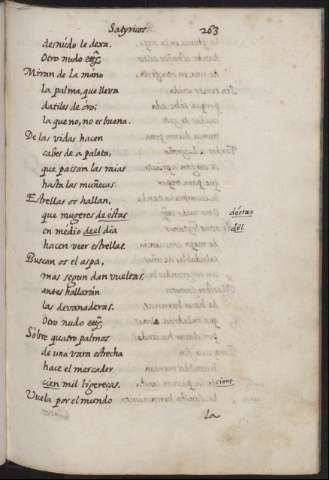 Satyricos 263
desnudo le dexa.
Otro nudo etc.
Miran de la mano
la palma, que lleva
datiles de oro:
la que no, no es buena.
De las vidas hacen
cabes de a paleta,
que passan las raias
hasta las muñecas.
Estrellas os hallan,
que mugeres de estas destas
en medio de el dia del
hacen ver estrellas.
Buscan os el aspa,
mas segun dan vueltas
antes hallarán
las devanaderas.
Otro nudo etc.
Sobre quatro palmos
de una vara estrecha
hace el mercader
cien mil ligereças. cient
Vuela por el mundo
la